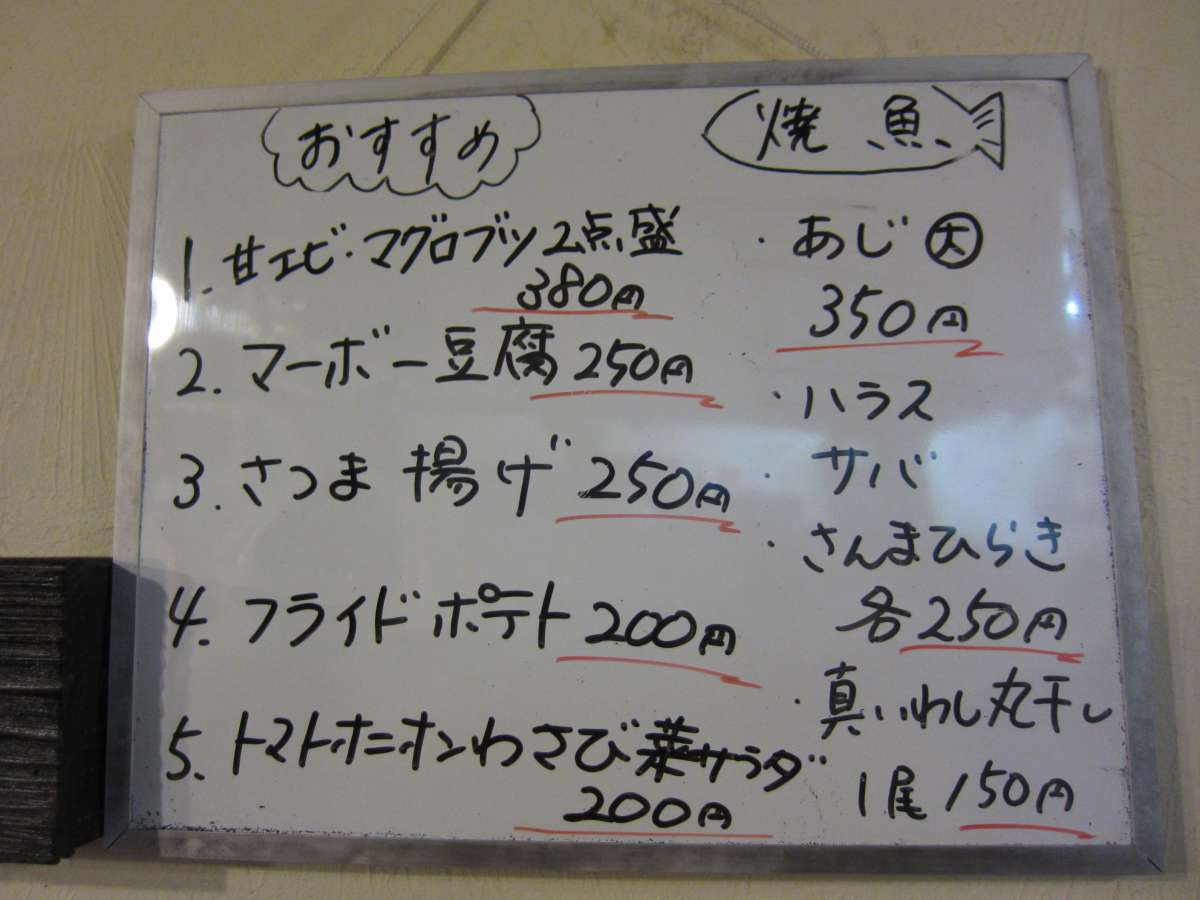 おすすめ
1. 甘エビ・マグロブツ2点盛
380円
2. マーボー豆腐 250円
3. さつま揚げ 250円
4. フライドポテト 200円
5. トマトオニオンわさび菜サラダ
200円
焼魚
・あじ㊛
350円
・ハラス
・サバ
・さんまひらき
各250円
・真いわし丸干し
1尾 150円